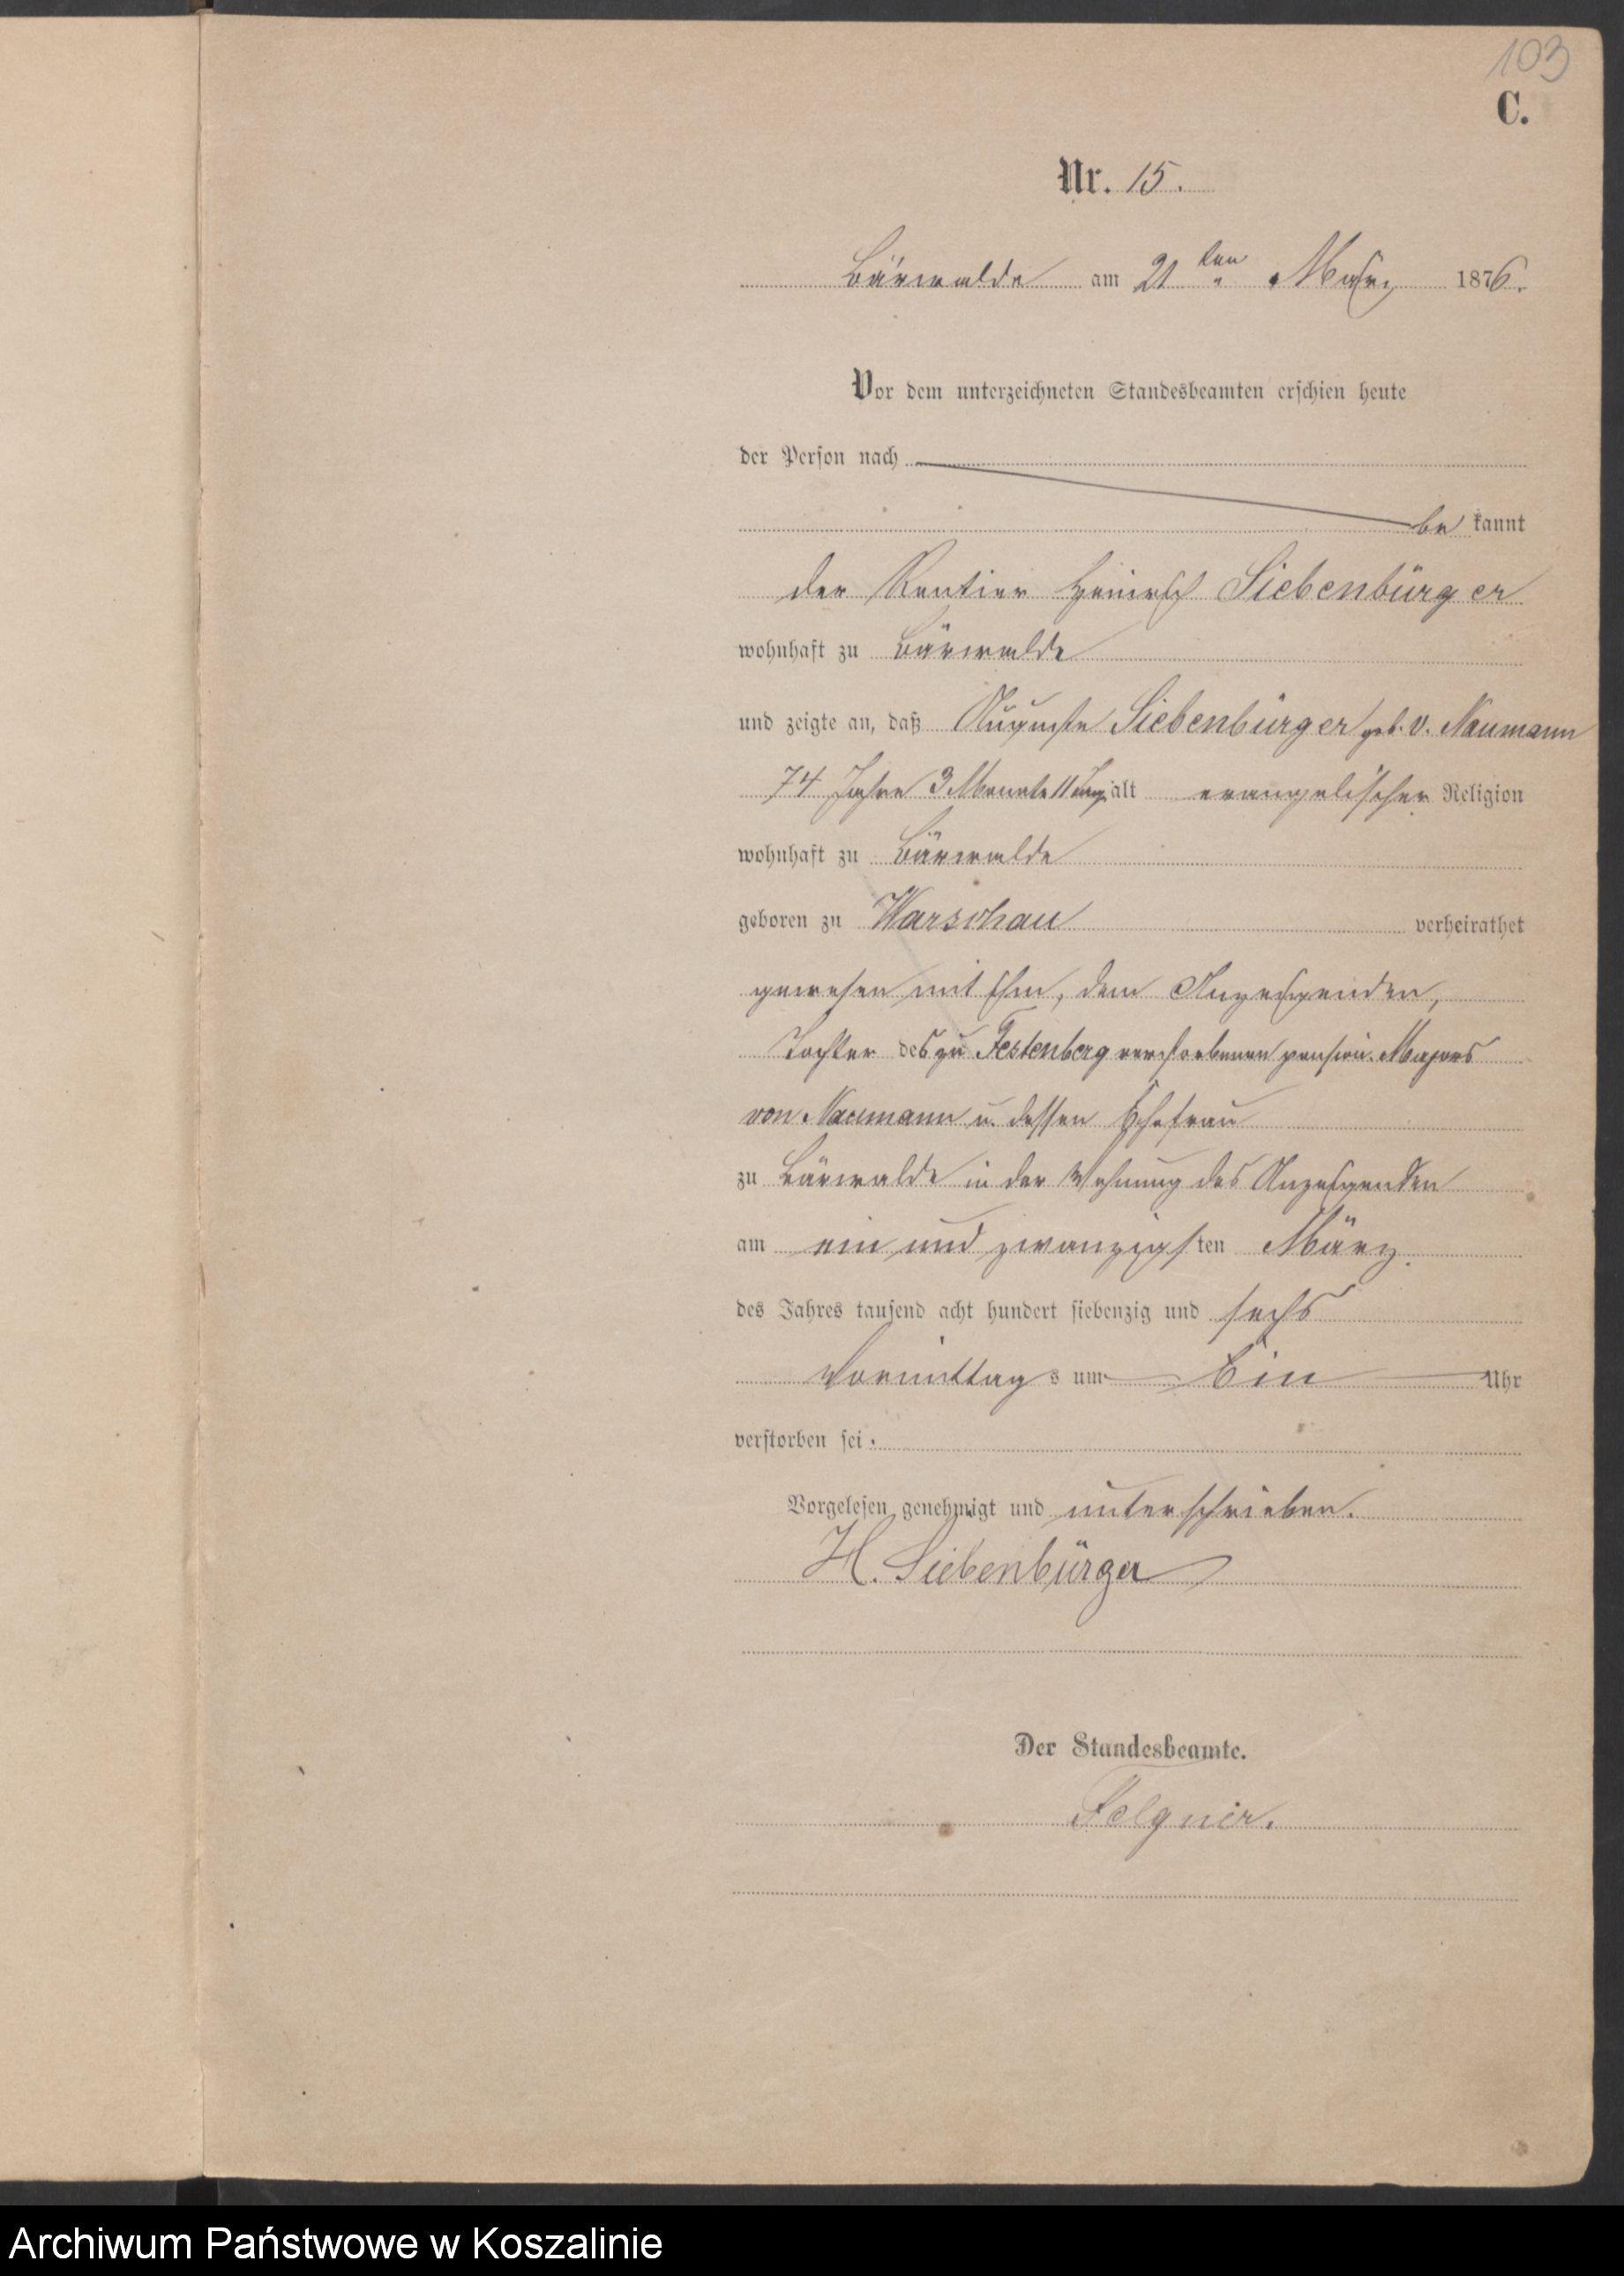 103
C.
Nr. 15.
Bärwalde am 21ten März 1876.
Vor dem unterzeichneten Standesbeamten erschien heute
der Person nach
be kannt
der Rentier Heinrich Siebenbürger
wohnhaft zu Bärwalde
und zeigte an, daß Auguste Siebenbürger geb. v. Naumann
74 Jahre 3 Monate 11 Tage alt evangelischer Religion
wohnhaft zu Bärwalde
geboren zu Warschau verheirathet
gewesen mit ihm, dem Anzeigenden,
Tochter des zu Festenberg verstorbenen pension. Majors
von Naumann u. dessen Ehefrau
zu Bärwalde in der Wohnung des Anzeigenden
am ein und zwanzigsten März
des Jahres tausend acht hundert siebenzig und sechs
Vormittags um Ein Uhr
verstorben sei.
Vorgelesen, genehmigt und unterschrieben.
H. Siebenbürger
Der Standesbeamte.
Felgner.
Archiwum Państwowe w Koszalinie